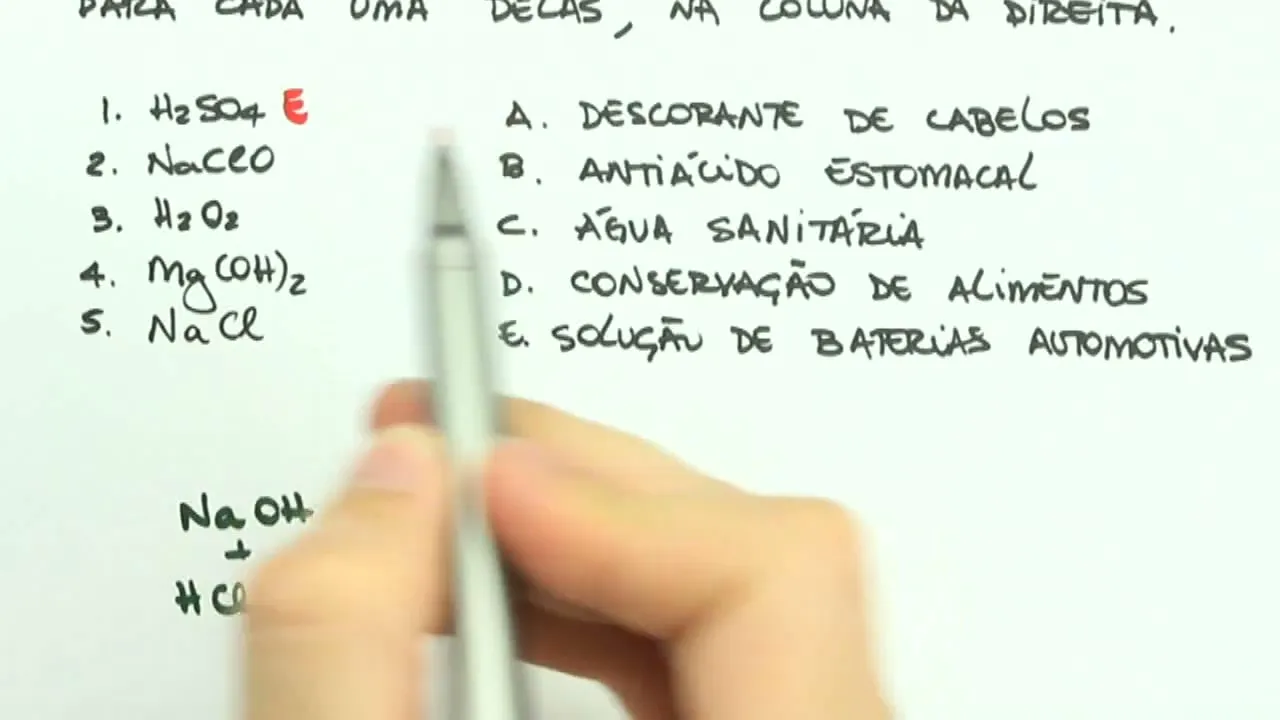 PARA CADA UMA DELAS, NA COLUNA DA DIREITA.
1. H2SO4 E
2. NaClO
3. H2O2
4. Mg(OH)2
5. NaCl
A. DESCORANTE DE CABELOS
B. ANTIÁCIDO ESTOMACAL
C. ÁGUA SANITÁRIA
D. CONSERVAÇÃO DE ALIMENTOS
E. SOLUÇÃO DE BATERIAS AUTOMOTIVAS
NaOH
+
HCl